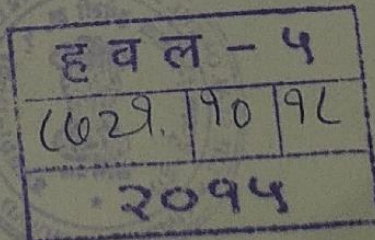 हवल - ५
८७२१. १० १८
२०१५